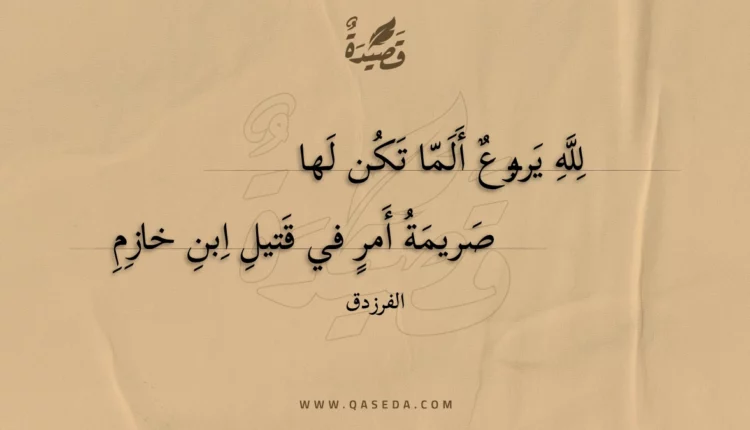 قَصِيدَةٌ
لِلَّهِ يَروعٌ أَلَمّا تَكُن لَها
صَريمَةُ أَمرٍ في قَتيلِ اِبنِ خازِمِ
الفرزدق
WWW.QASEDA.COM